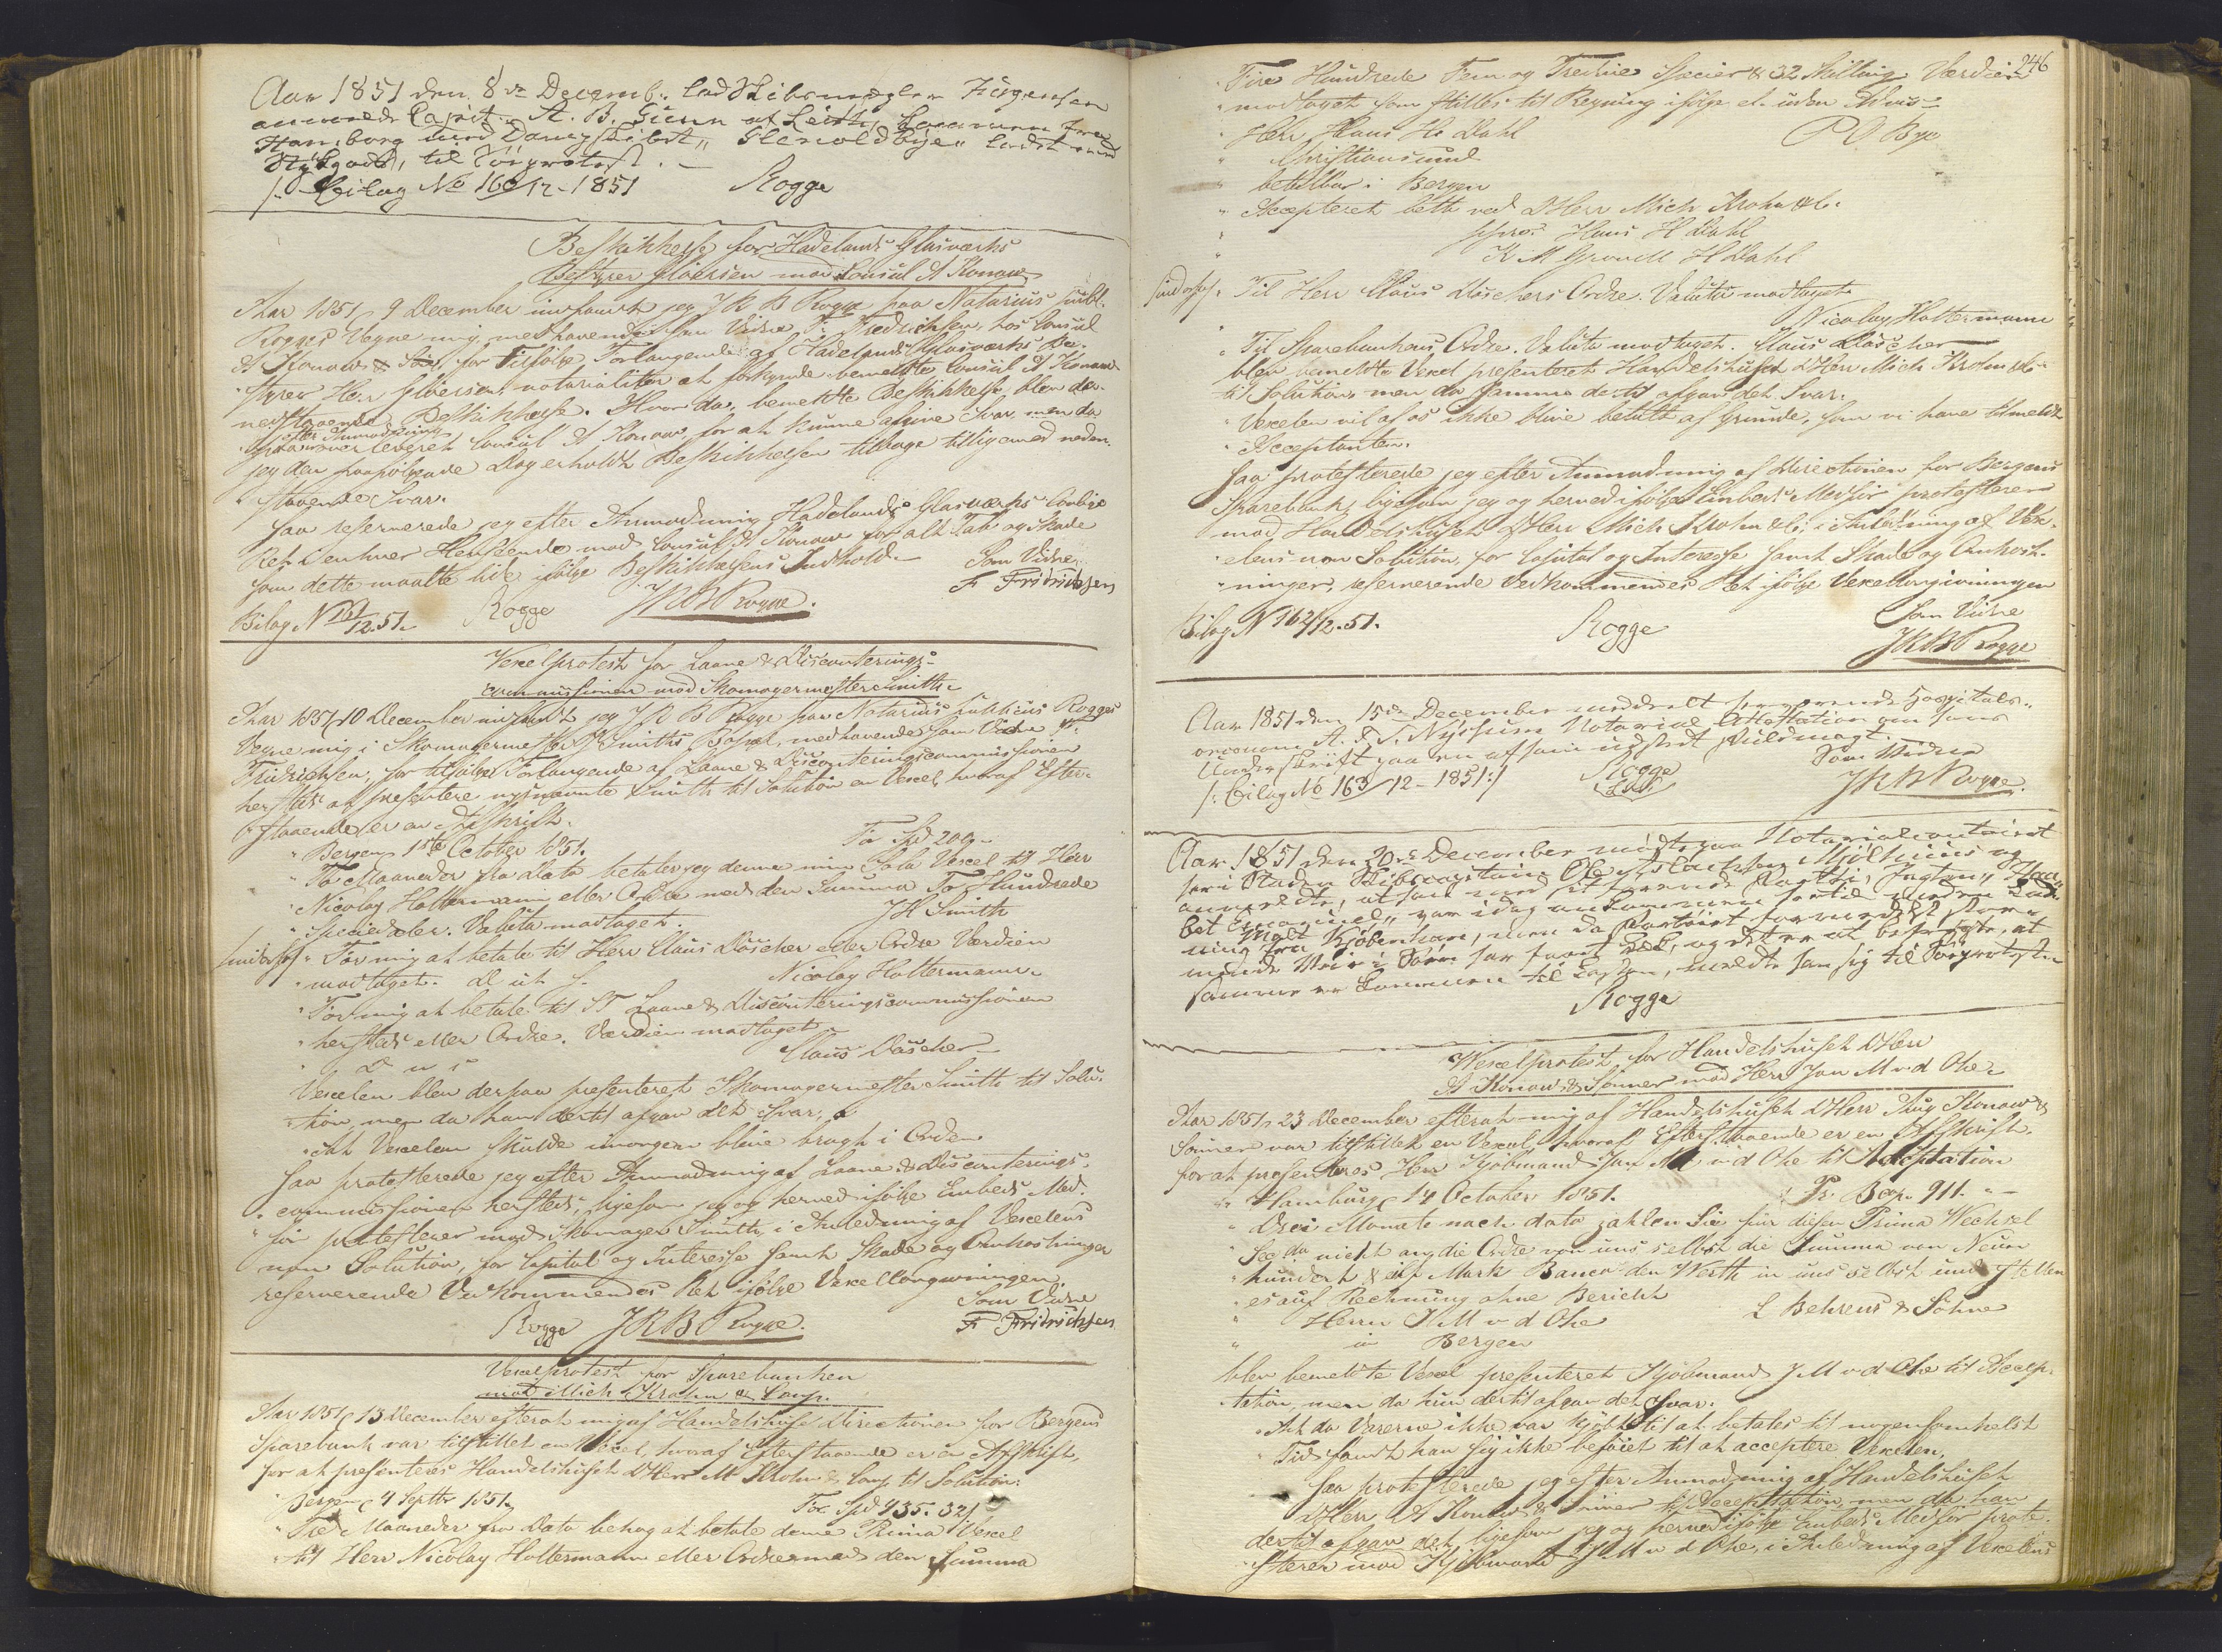 Aar 1851 den 8de Decemb. lod Skibsmægler Jürgensen
anmelde Capit. A. B. Gunn af Leith, kommen fra
Hamborg med Dampskibet "Glenoldbye" ladet med
Stykgods, til Søeprotest.
/: Bilag No 160/12-1851 Rogge
Beskikkelse for Hadelands Glasværks
Bestyrer Gløersen mod Consul A Konow
Aar 1851 9 December indfandt jeg J R B Rogge paa Notarius publ.
Rogges Vegne mig, medhavende som Vidne F. Fredrichsen, hos Consul
A Konow for Tilfølge Forlangende af Hadelands Glasværks Be-
styrer Herr Gløersen, notarialiter at forkynde bemeldte Consul A Konow
nedstaaende Beskikkelse. Hvor da bemeldte Beskikkelse blev der-
efter Anmodning
paa overleveret Consul A Konow, for at kunne afgive Svar, men da
jeg den paafølgende Dag erholdt Beskikkelsen tilbage tilligemed neden-
staaende Svar.
Saa reserverede jeg efter Anmodning Hadelands Glasværks lovlige
Ret Denhver Henseende mod Consul A Konow for alt Tab og Skade
som dette maatte lide ifølge Beskikkelsens Indhold.
Som Vidne
F Fridrichsen
Bilag N 161/12.51. Rogge JRB Rogge.
Vexelprotest for Laane & Disconterings-
commissionen mod Skomagermester Smith
Aar 1851 10 December indfandt jeg J R B Rogge paa Notarius publicus Rogges
Vegne mig i Skomagermester Smiths Bopæl, medhavende som Vidne F.
Fridrichsen, for tilfølge Forlangende af Laane & Disconteringscommissionen
herstæds at presentere nysnævnte Smith til Solution en Vexel, hvoraf Efter-
staaende er en Afskrift.
"Bergen 1ste October 1851. For Spd 200.-
"To Maaneder fra Dato betaler jeg denne min Sola Vexel til Herr
"Nicolay Holtermann eller Ordre med den Summa To Hundrede
"Speciedaler. Valuta modtaget. J H Smith
"For mig at betale til Herr Claus Dáscher eller Ordre Værdien
"modtaget. D ut S. Nicolay Holtermann.
"For mig at betale til ST Laane & Disconteringscommissionen
"herstæds eller Ordre. Værdien modtaget
" D u s Claus Dáscher
Vexelen blev derpaa presenteret Skomagermester Smith til Solu-
tion, men da han dertil afgav det Svar;
"At Vexelen skulde imorgen blive bragt i Orden
Saa protesterede jeg efter Anmodning af Laane & Disconterings-
commissionen herstæds, ligesom jeg og herved ifølge Embeds Med-
før protesterer mod Skomager Smith, i Anledning af Vexelens
non Solution, for Capital og Interesse samt Skade og Omkostninger
reserverende Vedkommendes Ret ifølge Vexellovgivningen.
Som Vidne
Rogge JRB Rogge. F Fridrichsen
Vexelprotest for Sparebanken
mod Mich Krohn & Comp.
Aar 1851 13 December efterat mig af Handelshuset Directionen for Bergens
Sparebank var tilstillet en Vexel, hvoraf Efterstaaende er en Afskrift,
for at presenteres Handelshuset DHerr M Krohn & Comp til Solution:
"Bergen 4 Septbr 1851 For Spd 435. 32 s
"Tre Maaneder fra Dato behag at betale denne Prima Vexel
"til Herr Nicolay Holtermann eller Ordre med den Summa
246
"Fire Hundrede Fem og Tredive Specier & 32 Skilling Værdien
"modtaget som stilles til Regning ifølge el. uden Advis-
"Herr Hans H. Dahl P O Bye
" Christiansund
" betalbar i Bergen
"Accepteret bettb ved DHerr Mich Krohn & C.
" ppro: Hans H Dahl
" K M Grønell H Dahl
Til Herr Claus Dáschers Ordre. Valuta modtaget
Nicolay Holtermann
"Til Sparebankens Ordre. Valuta modtaget. Claus Dáscher
blev bemeldte Vexel presenteret Handelshuset DHerr Mich Krohn & C
til Solution, men da samme dertil afgav det Svar.
"Vexelen vil af os ikke blive betalt af Grunde, som vi have tilmeldt
"Acceptanten.
Saa protesterede jeg efter Anmodning af Directionen for Bergens
Sparebank, ligesom jeg og herved ifølge Embeds Medfør protesterer
mod Handelshuset DHerr Mich Krohn & C: i Anledning af Vex-
elens non Solution, for Capital og Interesse samt Skade og Omkost-
ninger, reserverende Vedkommendes Ret ifølge Vexellovgivningen
Som Vidne
Bilag N 162/12.51. Rogge JRB Rogge
Aar 1851 den 15de December meddeelt herværende Hospitals-
oeconom A. F. S. Nyssum Notarial Attestation om hans
Underskrift paa en af ham udstedt Fuldmagt.
Som Vidne
/: Bilag No 163/12-1851:/ Rogge JRB Rogge.
Aar 1851 den 20de December mødte paa Notarialcontoiret
her i Staden Skibscapitain Ole Aslachsen Mjølhuus og
anmeldte, at han med sit førende Fartøi, Jagten "Haa-
bet Emanuel" var idag ankommen hertil med en Lad-
ning fra Kjøbenhavn, men da Fartøiet formedelst stor-
mende Veir i Søen har faaet Læk, og det er at befrygte, at
samme er kommen til Lasten, meldte han sig til Søeprotest
Rogge
Wexelprotest for Handelshuset DHerr
A Konow & Sønner mod Herr Jan M v d Ohe
Aar 1851, 23 December efterat mig af Handelshuset DHerr Aug Konow &
Sønner var tilstillet en Vexel, hvoraf Efterstaaende er en Afskrift,
for at presenteres Herr Kjøbmand Jan M v d Ohe til Acceptation
"Hamburg 14 October 1851. Pr. Bco. 911. "-
"Drei Monate nach dato zahlen Sie für diesen Prima Wechsel
"Sec da nicht an die Ordre von uns selbst die Summa von Neun
"hundert & eilf Mark Banco den Werth in uns selbst und stellen
"es auf Rechnung ohne Bericht L Behrens & Söhne
" Herrn J M v d Ohe
" in Bergen
blev bemeldte Vexel presenteret Kjøbmand J M v d Ohe til Accep-
tation, men da han dertil afgav det Svar.
"At da Varerne ikke var kjøbt til at betales til nogensomhelst
"Tid fandt han sig ikke beføiet til at acceptere Vexelen.
Saa protesterede jeg efter Anmodning af Handelshuset
DHerr A Konow & Sønner til Acceptation, men da han
dertil afgav det, ligesom jeg og herved ifølge Embeds Medfør prote-
sterer mod Kjøbmand J M v d Ohe, i Anledning af Vexelens